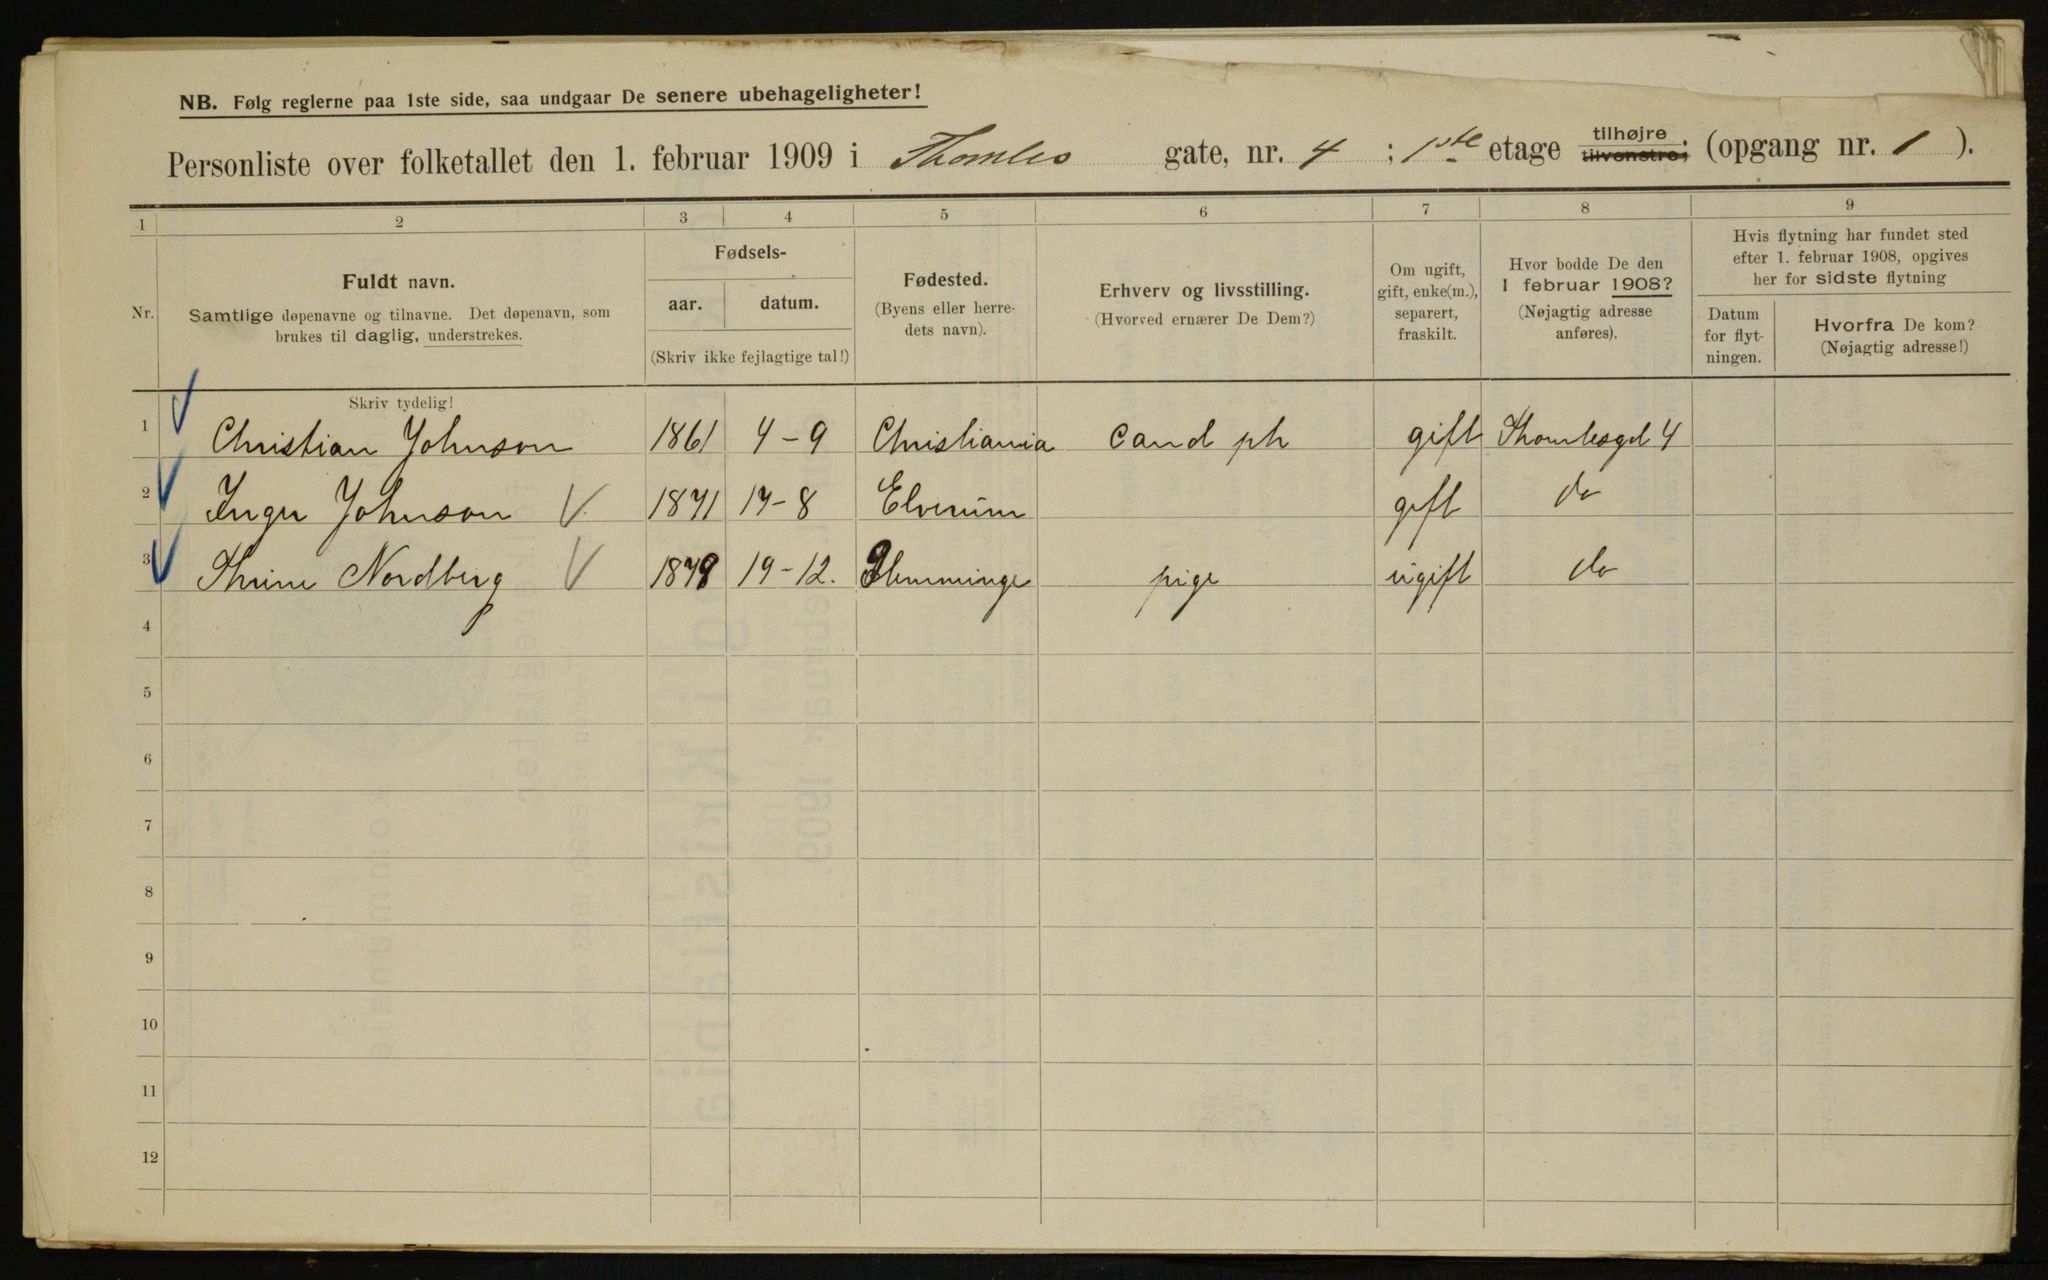 NB. Følg reglerne paa 1ste side, saa undgaar De senere ubehageligheter!
Personliste over folketallet den 1. februar 1909 i Thomles gate, nr. 4 ; 1ste etage tilhøjre tilvenstre; (opgang nr. 1 ).
1 2 3 4 5 6 7 8 9
Nr.
Fuldt navn.
Samtlige døpenavne og tilnavne. Det døpenavn, som
brukes til daglig, understrekes.
Fødsels-
aar. datum.
(Skriv ikke fejlagtige tal!)
Fødested.
(Byens eller herre-
dets navn).
Erhverv og livsstilling.
(Hvorved ernærer De Dem?)
Om ugift,
gift, enke(m.),
separert,
fraskilt.
Hvor bodde De den
1 februar 1908?
(Nøjagtig adresse
anføres).
Hvis flytning har fundet sted
efter 1. februar 1908, opgives
her for sidste flytning
Datum
for flyt-
ningen.
Hvorfra De kom?
(Nøjagtig adresse!)
Skriv tydelig!
1 Christian Johnson 1861 4-9 Christiania Cand ph gift Thomlesgd 4
2 Inger Johnson 1871 17-8 Elverum gift do
3 Thrine Nordberg 1879 19-12. Glemminge pige ugift do
4
5
6
7
8
9
10
11
12